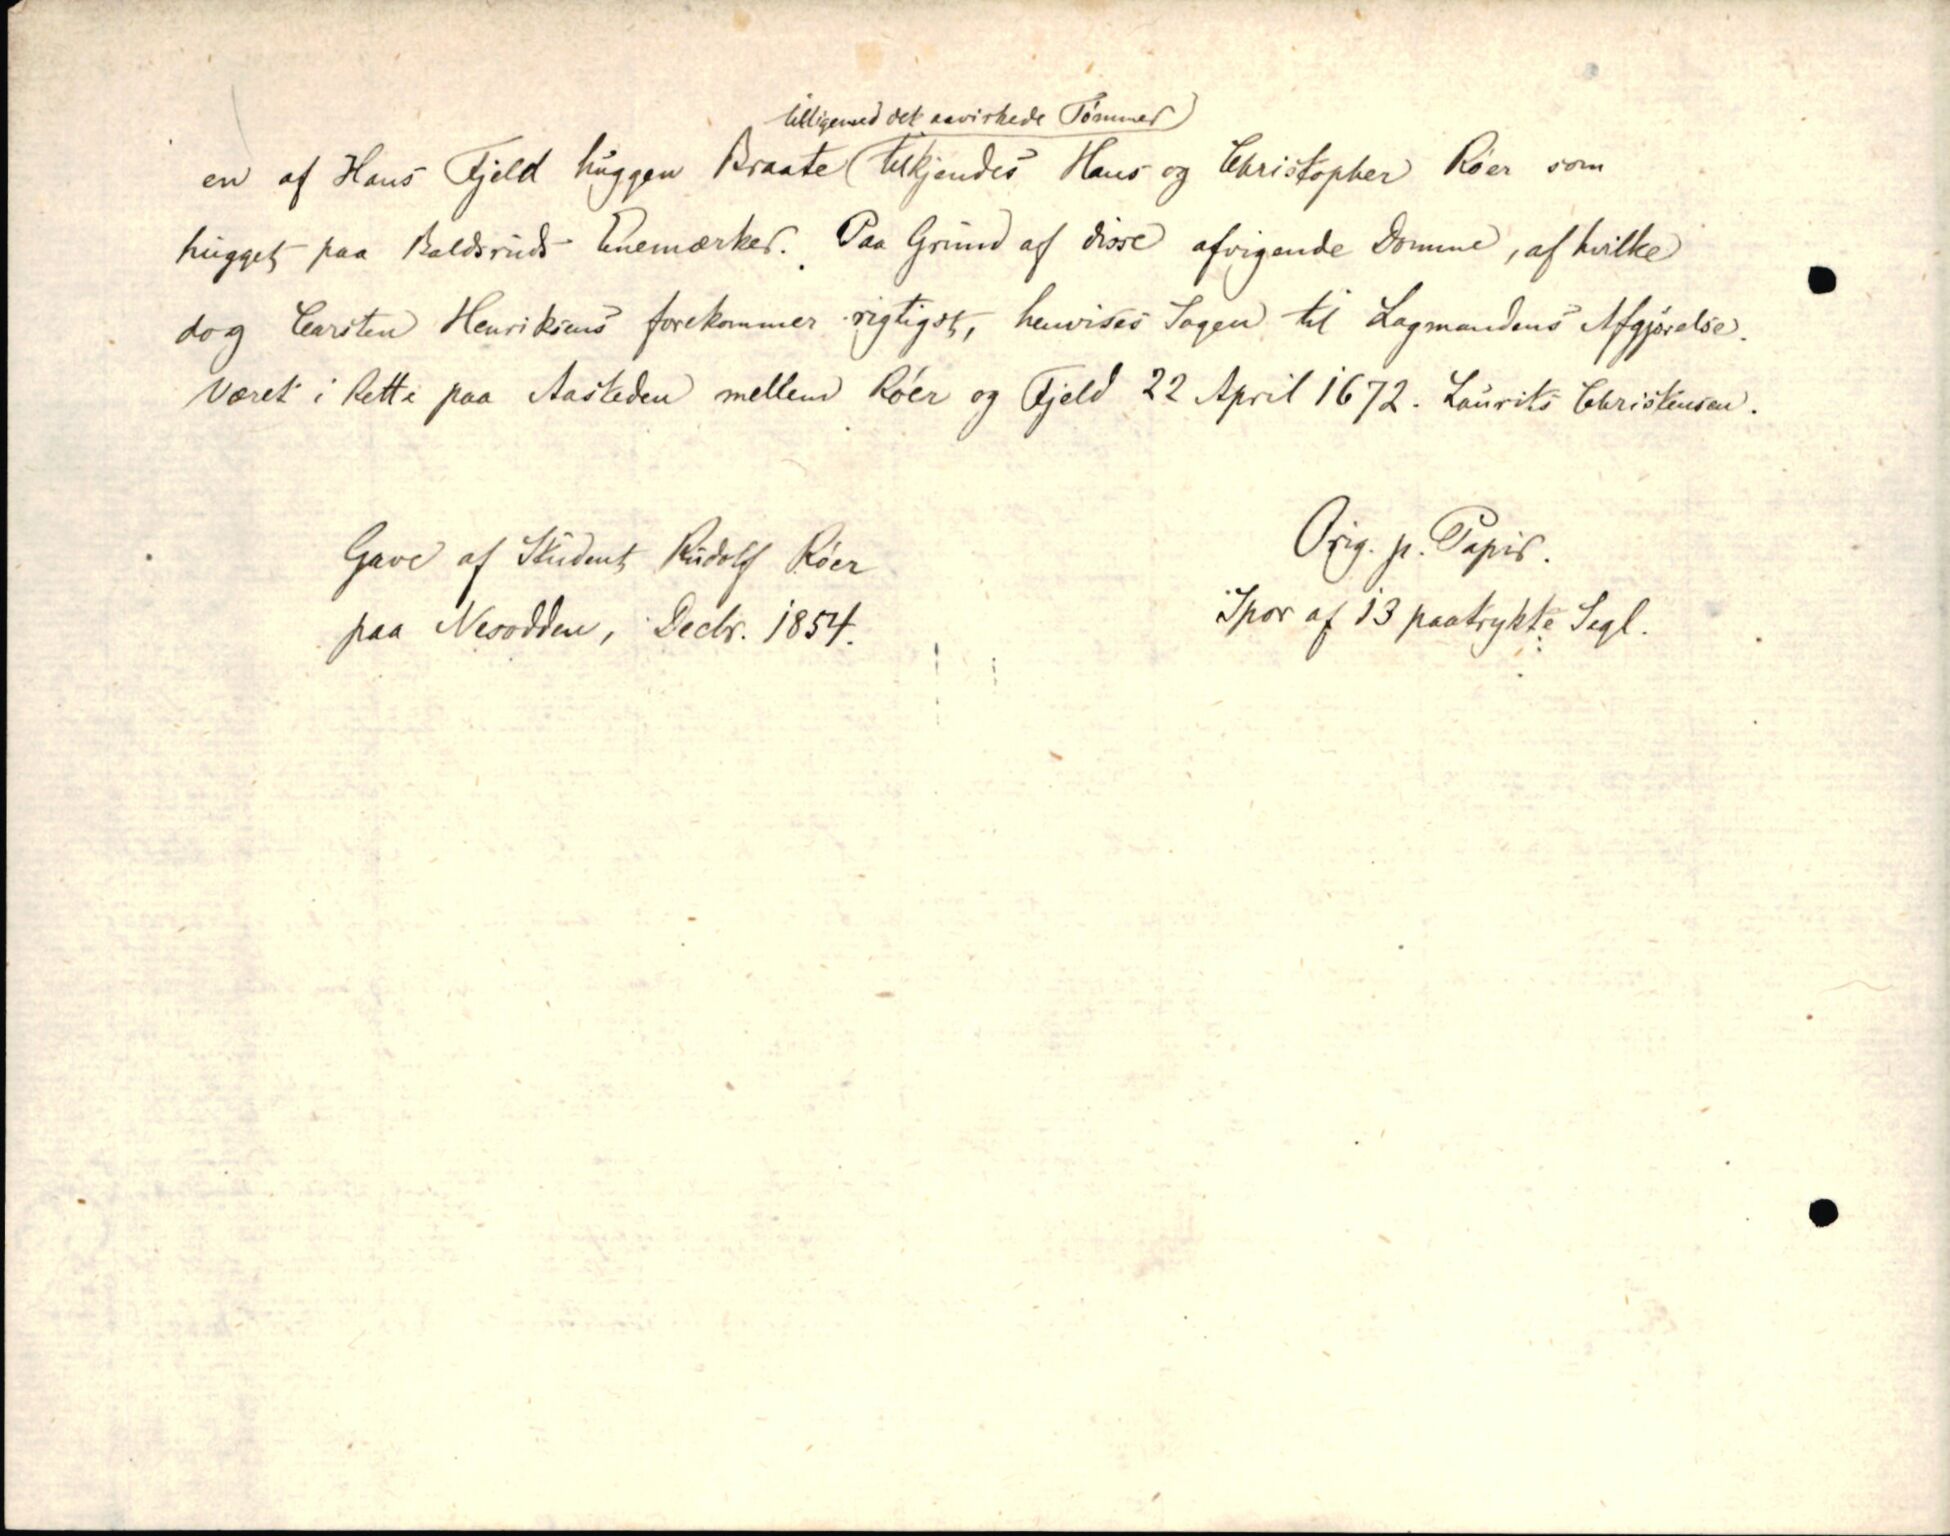 tilligemed det aavirkede Tömmer)
en af Hans Fjeld huggen Braate (tilkjendes Hans og Christopher Röer som
hugget paa Baldsruds Enemærker. Paa Grund af disse afvigende Domme, af hvilke
dog Carsten Henriksens forekommer rigtigst, henvises Sagen til Lagmandens Afgjörelse.
Været i Rette paa Aasteden mellem Röer og Fjeld 22 April 1672. Laurits Christensen.
Gave af Student Rudolf Röer
paa Nesodden, Decbr. 1854.
Orig. p. Papir.
Spor af 13 paatrykte Segl.